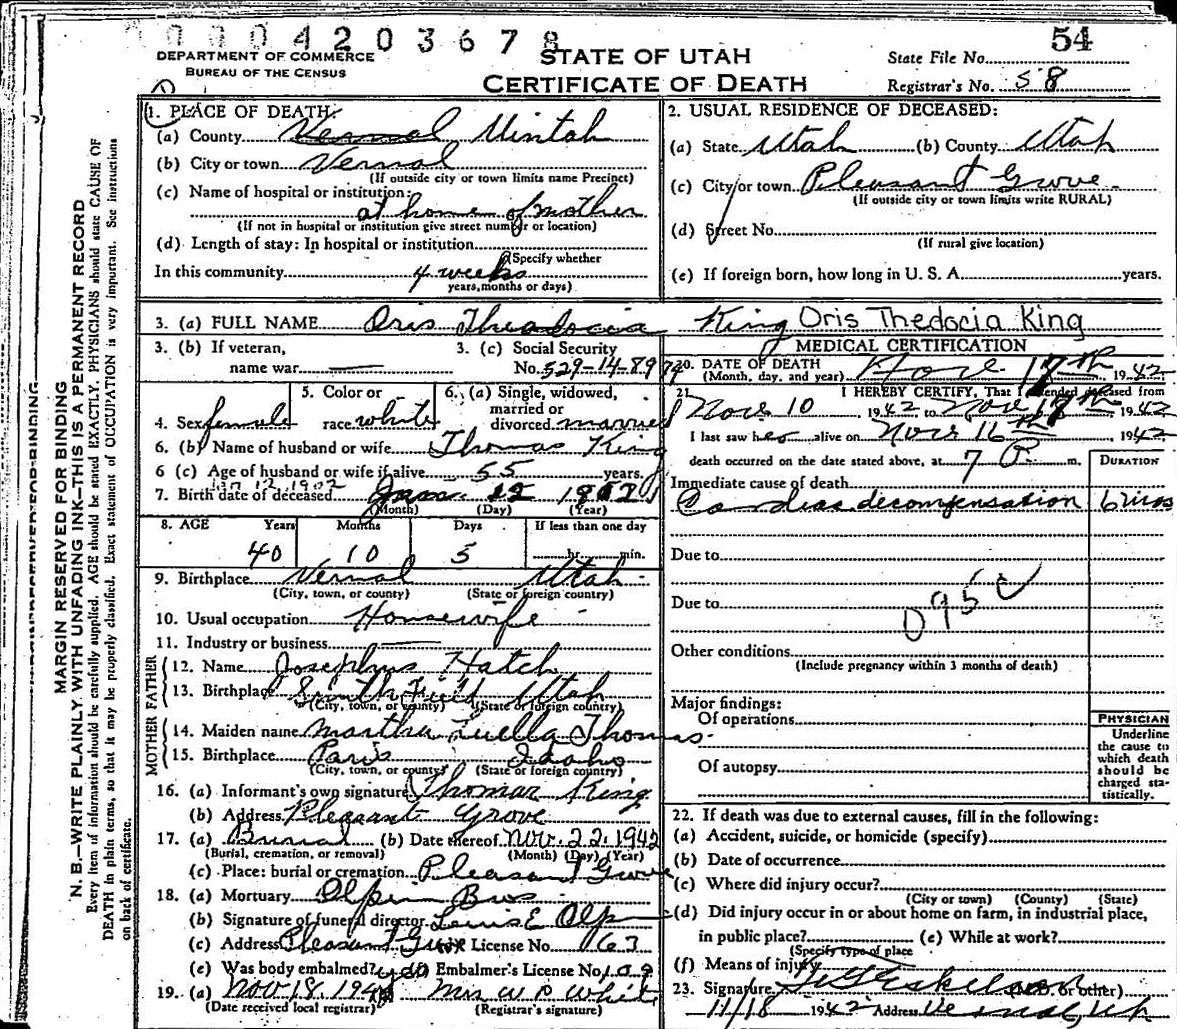 0004203678
54
DEPARTMENT OF COMMERCE
BUREAU OF THE CENSUS
STATE OF UTAH
CERTIFICATE OF DEATH
State File No.
Registrar's No. 58
MARGIN RESERVED FOR BINDING
N. B.—WRITE PLAINLY, WITH UNFADING INK—THIS IS A PERMANENT RECORD
Every item of information should be carefully supplied. AGE should be stated EXACTLY. PHYSICIANS should state CAUSE OF
DEATH in plain terms, so that it may be properly classified. Exact statement of OCCUPATION is very important. See instructions
on back of certificate.
1. PLACE OF DEATH:
(a) County Vernal Uintah
(b) City or town Vernal
(If outside city or town limits name Precinct)
(c) Name of hospital or institution:
at home of mother
(If not in hospital or institution give street number or location)
(d) Length of stay: In hospital or institution
(Specify whether
In this community 4 weeks
years, months or days)
2. USUAL RESIDENCE OF DECEASED:
(a) State Utah (b) County Utah
(c) City or town Pleasant Grove
(If outside city or town limits write RURAL)
(d) Street No.
(If rural give location)
(e) If foreign born, how long in U. S. A. years.
3. (a) FULL NAME Oris Theadocia King Oris Thedocia King
3. (b) If veteran,
name war
3. (c) Social Security
No. 529-14-8979
4. Sex female
5. Color or
race white
6. (a) Single, widowed,
married or
divorced married
6. (b) Name of husband or wife Thomas King
6 (c) Age of husband or wife if alive 55 years.
Jan 12, 1902
7. Birth date of deceased Jan. 12
(Month) (Day) (Year)
8. AGE Years Months Days If less than one day
40 10 5 hr. min.
9. Birthplace Vernal Utah
(City, town, or county) (State or foreign country)
10. Usual occupation Housewife
11. Industry or business
FATHER
12. Name Josephus Hatch
13. Birthplace Smithfield Utah
(City, town, or county) (State or foreign country)
MOTHER
14. Maiden name Martha Luella Thomas
15. Birthplace Paris Idaho
(City, town, or county) (State or foreign country)
16. (a) Informant's own signature Thomas King
(b) Address Pleasant Grove
17. (a) Burial (b) Date thereof Nov. 22. 1942
(Burial, cremation, or removal) (Month) (Day) (Year)
(c) Place: burial or cremation Pleasant Grove
18. (a) Mortuary Olpin Bros
(b) Signature of funeral director Louis E Olpin
(c) Address Pleasant Grove License No. 163
(e) Was body embalmed? yes Embalmer's License No. 109
19. (a) Nov 18. 1942 Mrs W P White
(Date received local registrar) (Registrar's signature)
MEDICAL CERTIFICATION
20. DATE OF DEATH
(Month, day, and year) Nov 17th 1942
21. I HEREBY CERTIFY, That I attended deceased from
Nov 10 1942 to Nov 17th 1942
I last saw her alive on Nov 16th 1942
death occurred on the date stated above, at 7 m.
DURATION
Immediate cause of death
Cardiac decompensation 6 mos
Due to
Due to
095c
Other conditions
(Include pregnancy within 3 months of death)
Major findings:
Of operations
Of autopsy
PHYSICIAN
Underline
the cause to
which death
should be
charged sta-
tistically.
22. If death was due to external causes, fill in the following:
(a) Accident, suicide, or homicide (specify)
(b) Date of occurrence
(c) Where did injury occur?
(City or town) (County) (State)
(d) Did injury occur in or about home on farm, in industrial place,
in public place? (e) While at work?
(Specify type of place
(f) Means of injury
23. Signature (M.D. or other)
11/18 1942 Address Vernal, Ut